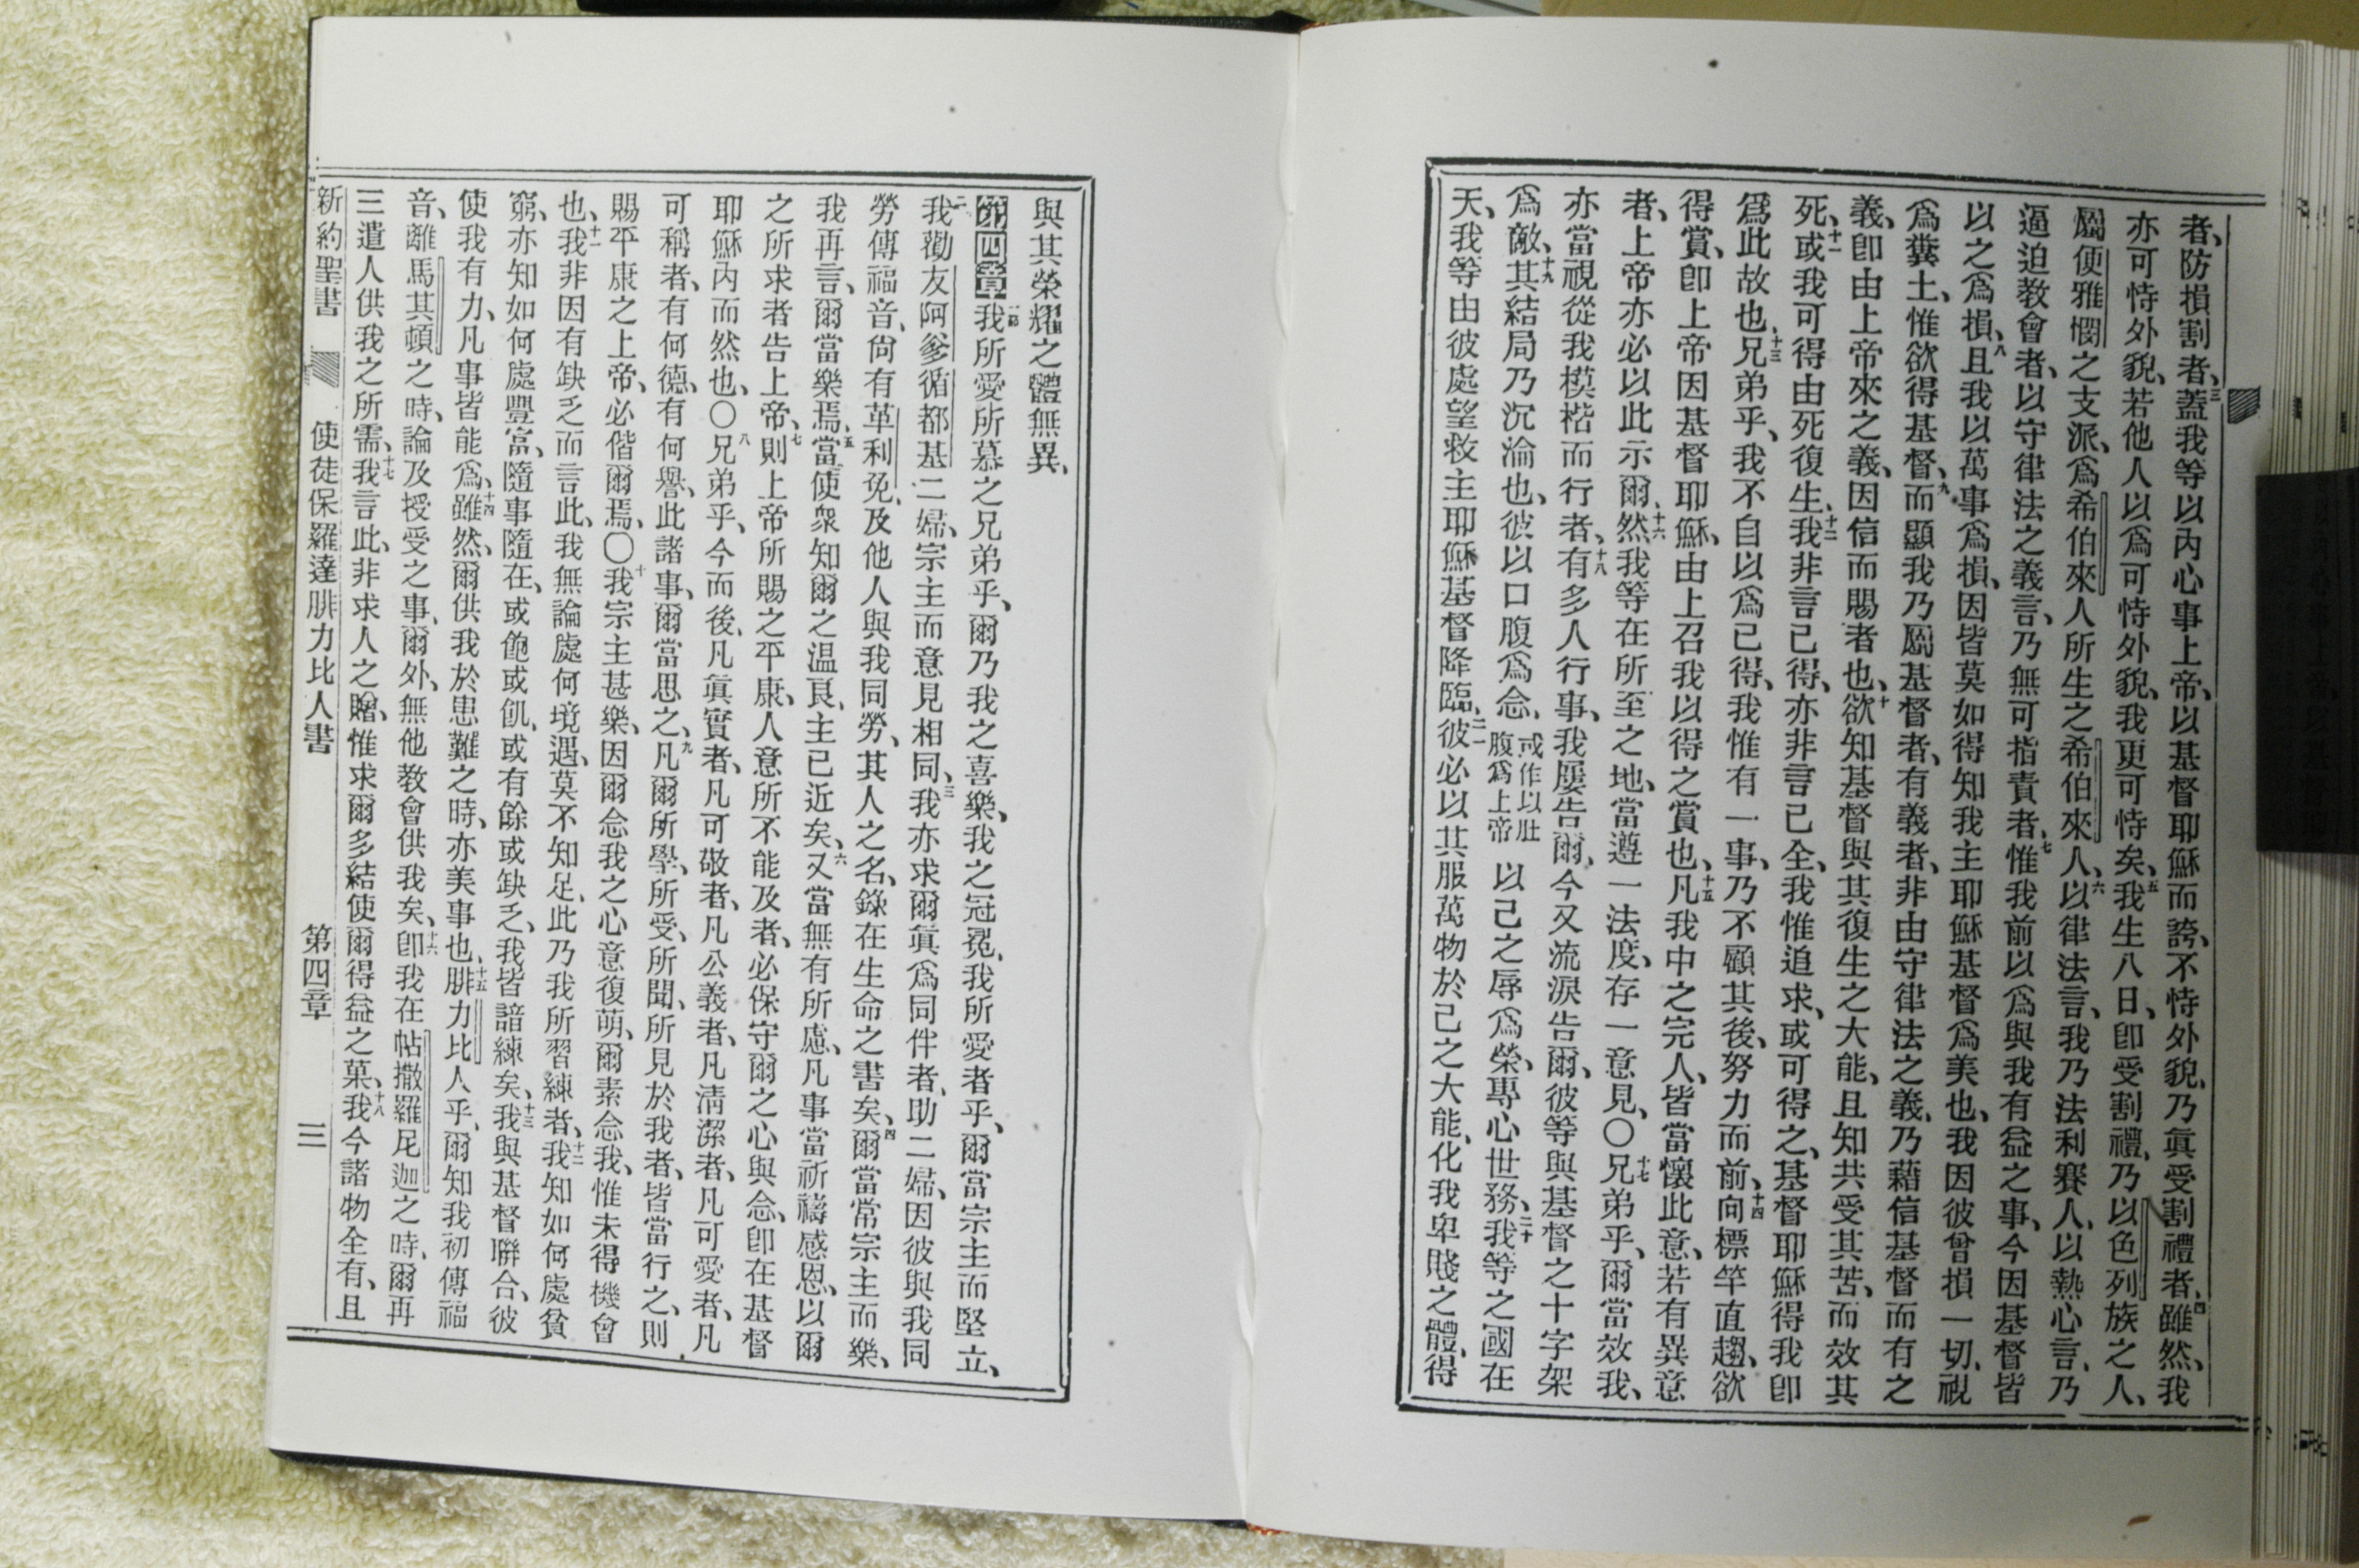 者、防損割者、三蓋我等以內心事上帝、以基督耶穌而誇、不恃外貌、乃眞受割禮者、四雖然、我
亦可恃外貌、若他人以爲可恃外貌、我更可恃矣、五我生八日、卽受割禮、乃以色列族之人、
屬便雅憫之支派、爲希伯來人所生之希伯來人、六以律法言、我乃法利賽人、以熱心言、乃
逼迫敎會者、以守律法之義言、乃無可指責者、七惟我前以爲與我有益之事、今因基督皆
以之爲損、八且我以萬事爲損、因皆莫如得知我主耶穌基督爲美也、我因彼曾損一切、視
爲糞土、惟欲得基督、九而顯我乃屬基督者、有義者、非由守律法之義、乃藉信基督而有之
義、卽由上帝來之義、因信而賜者也、十欲知基督與其復生之大能、且知共受其苦、而效其
死、十一或我可得由死復生、十二我非言已得、亦非言已全、我惟追求、或可得之、基督耶穌得我卽
爲此故也、十三兄弟乎、我不自以爲已得、我惟有一事、乃不顧其後、努力而前、十四向標竿直趨、欲
得賞、卽上帝因基督耶穌、由上召我以得之賞也、十五凡我中之完人、皆當懷此意、若有異意
者、上帝亦必以此示爾、十六然我等在所至之地、當遵一法度、存一意見、〇十七兄弟乎、爾當效我、
亦當視從我模楷而行者、十八有多人行事、我屢告爾、今又流淚告爾、彼等與基督之十字架
爲敵、十九其結局乃沉淪也、彼以口腹爲念、或作以肚腹爲上帝以己之辱爲榮、專心世務、二十我等之國在
天、我等由彼處望救主耶穌基督降臨、二一彼必以其服萬物於己之大能、化我卑賤之體、得
與其榮耀之體無異、
第四章一節我所愛所慕之兄弟乎、爾乃我之喜樂、我之冠冕、我所愛者乎、爾當宗主而堅立、
二我勸友阿爹循都基二婦、宗主而意見相同、三我亦求爾眞爲同伴者、助二婦、因彼與我同
勞傳福音、尙有革利免、及他人與我同勞、其人之名、錄在生命之書矣、四爾當常宗主而樂、
我再言、爾當樂焉、五當使衆知爾之温良、主已近矣、六又當無有所慮、凡事當祈禱感恩、以爾
之所求者告上帝、七則上帝所賜之平康、人意所不能及者、必保守爾之心與念、卽在基督
耶穌內而然也、〇八兄弟乎、今而後、凡眞實者、凡可敬者、凡公義者、凡淸潔者、凡可愛者、凡
可稱者、有何德、有何譽、此諸事、爾當思之、九凡爾所學、所受、所聞、所見於我者、皆當行之、則
賜平康之上帝、必偕爾焉、〇十我宗主甚樂、因爾念我之心意復萌、爾素念我、惟未得機會
也、十一我非因有缺乏而言此、我無論處何境遇、莫不知足、此乃我所習練者、十二我知如何處貧
窮、亦知如何處豐富、隨事隨在、或飽或飢、或有餘或缺乏、我皆諳練矣、十三我與基督聯合、彼
使我有力、凡事皆能爲、十四雖然、爾供我於患難之時、亦美事也、十五腓力比人乎、爾知我初傳福
音、離馬其頓之時、論及授受之事、爾外、無他敎會供我矣、十六卽我在帖撒羅尼迦之時、爾再
三遣人供我之所需、十七我言此、非求人之贈、惟求爾多結使爾得益之菓、十八我今諸物全有、且
新約聖書 使徒保羅達腓力比人書 第四章 三